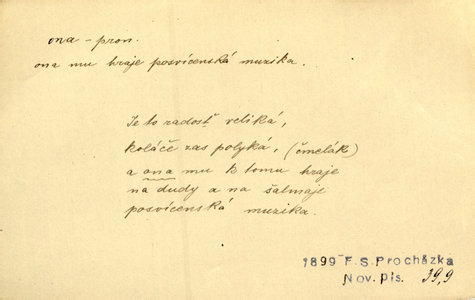 ona – pron.
ona mu hraje posvícenská muzika.
Je to radosť veliká,
koláče zas polyká, (čmelák)
a ona mu k tomu hraje
na dudy a na šalmaje
posvícenská muzika.
1899 F.S. Procházka
Nov. pís. 39,9